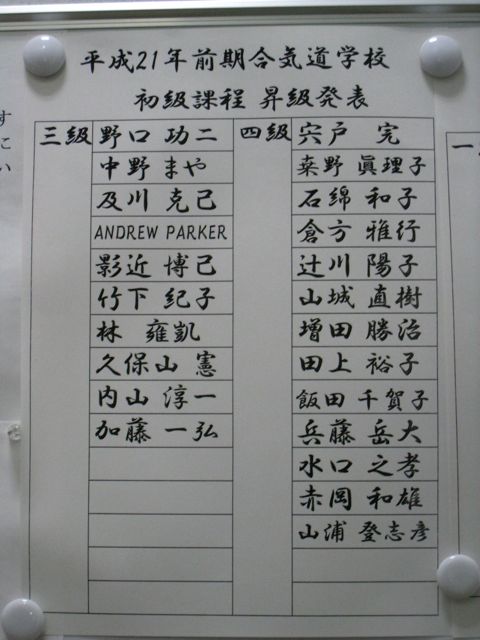 平成21年前期合気道学校
初級課程 昇級発表
三級
野口 功二
中野 まや
及川 克己
ANDREW PARKER
影近 博己
竹下 紀子
林 雍凱
久保山 憲
内山 淳一
加藤 一弘
四級
宍戸 完
桒野 眞理子
石綿 和子
倉方 雅行
辻川 陽子
山城 直樹
増田 勝治
田上 裕子
飯田 千賀子
兵藤 岳大
水口 之孝
赤岡 和雄
山浦 登志彦
す
に
い